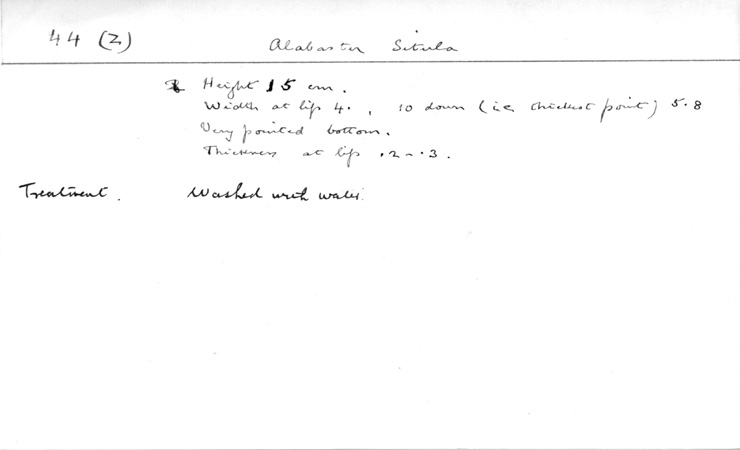 44 (Z) Alabaster Situla
Height 15 cm.
Width at lip 4. , 10 down (i.e. thickest point) 5.8
Very pointed bottom.
Thickness at lip .2 - .3.
Treatment. Washed with water.